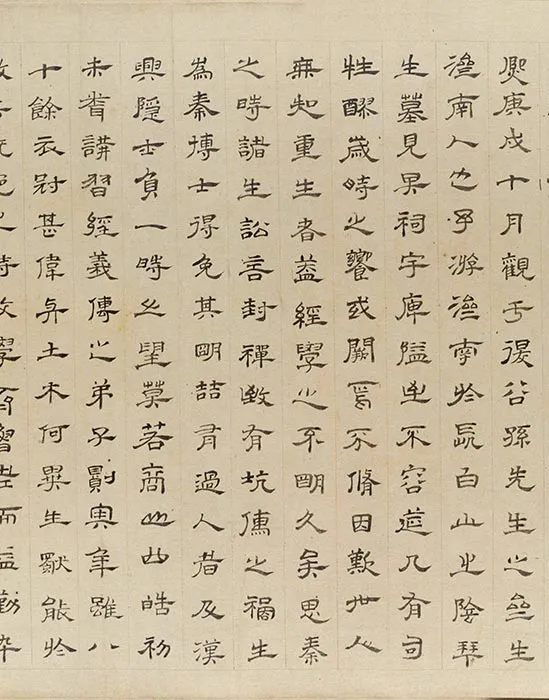 熙庚戌十月觀于退谷孫先生之生
濟南人也予游濟南於長白山之陰拜
生墓見其祠宇庳隘迫不容筵几有司
牲醪歲時之饗或闕焉不脩因歎世人
無知重生者蓋經學之不明久矣思秦
之時諸生訟言封禪致有坑儒之禍生
為秦博士得免其明喆有過人者及漢
興隱士負一時之望莫若商山四皓初
未嘗講習經義傳之弟子則與年雖八
十餘衣冠甚偉與土木何異生獨能於